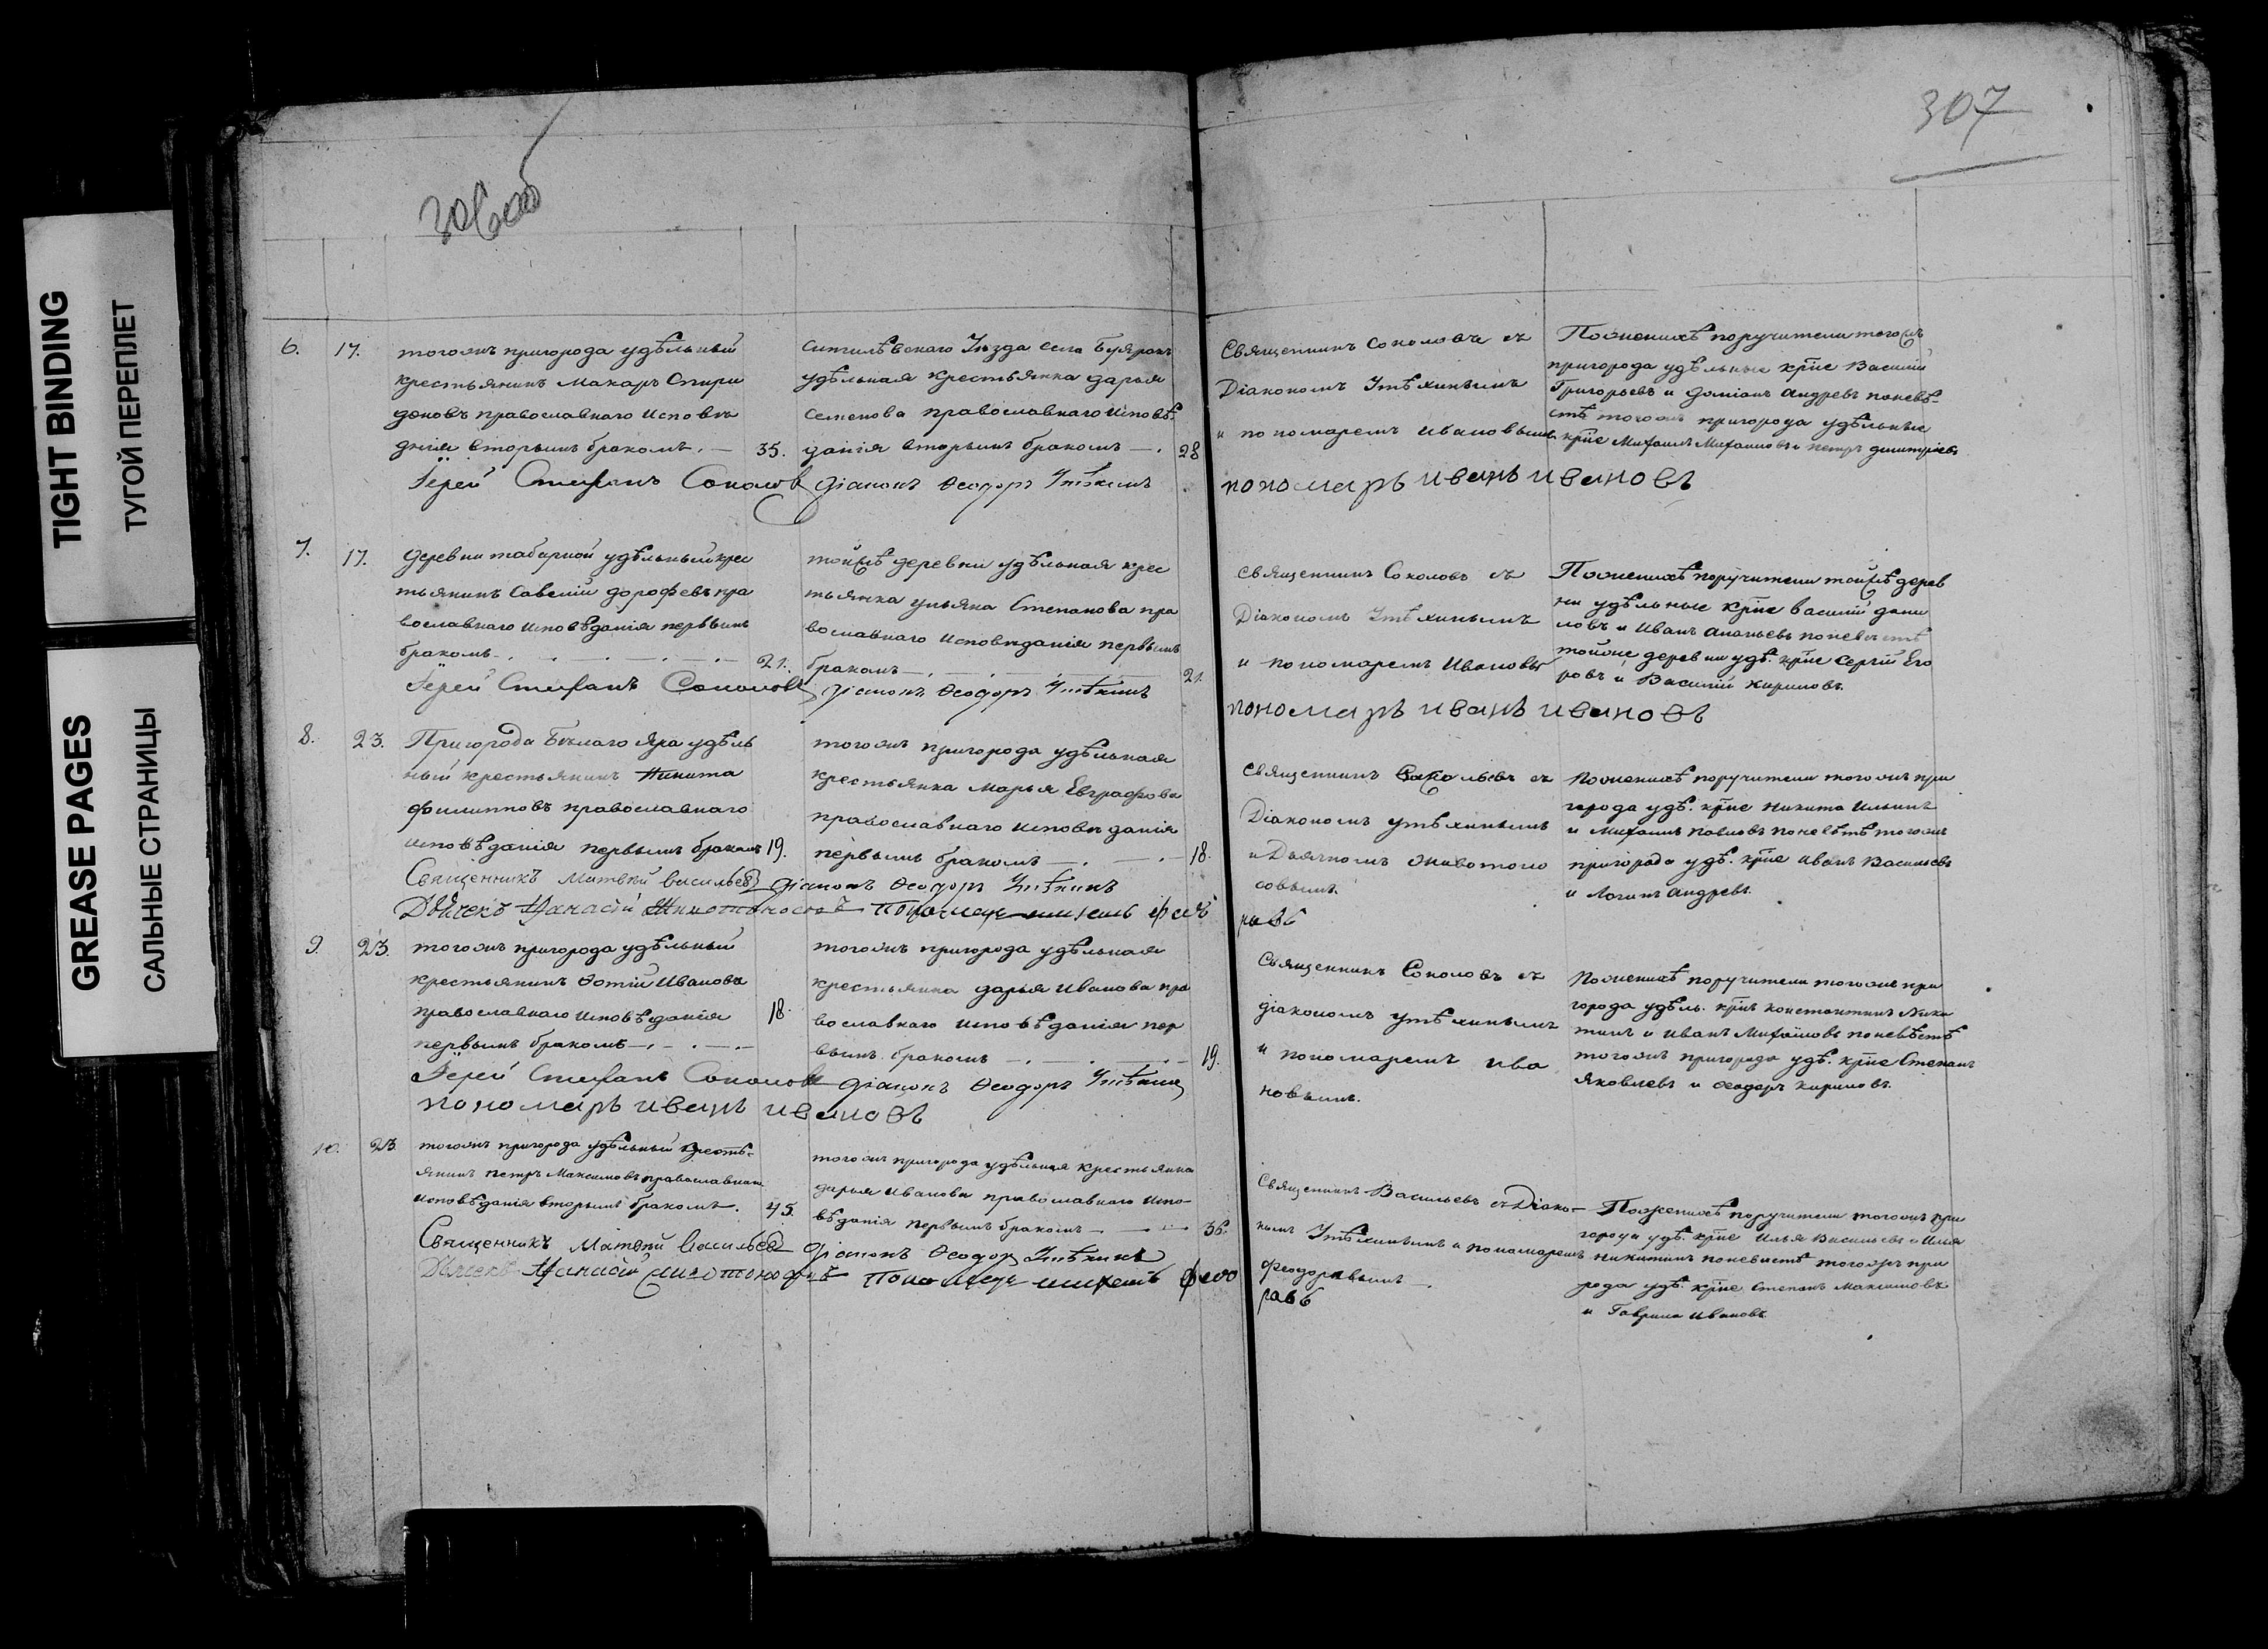 TIGHT BINDING
ТУГОЙ ПЕРЕПЛЕТ
GREASE PAGES
САЛЬНЫЕ СТРАНИЦЫ
306 об
307
6.
17.
тогожъ пригорода удѣльный
крестьянинъ Макаръ Спири
доновъ православнаго Исповѣ
данія вторымъ бракомъ. —
35.
Сингилѣевскаго Уѣзда села
удѣльная крестьянка Дарья
Семенова православнаго исповѣ-
данія вторымъ бракомъ —.
28
Священникъ Соколовъ съ
Діакономъ Утѣхинымъ
и пономаремъ Ивановымъ
По женихѣ поручители тогожъ
пригорода удѣльные кр͠не Василій
Григорьевъ и Доміанъ Андревъ по невѣ-
стѣ тогожъ пригорода удѣльные
кр͠не Михаилъ Михаиловъ и Петръ Димитріевъ
Іерей Стефанъ Соколовъ Діаконъ Ѳеодоръ Утѣхинъ
пономарь иванъ ивановъ
7.
17.
Деревни табарной удѣльный крес
тьянинъ Савелій Дорофевъ пра
вославнаго исповѣданія первымъ
бракомъ
21.
тойжѣ деревни удѣльная крес
тьянка ульяна Степанова пра
вославнаго исповѣданія первымъ
бракомъ
21.
Священникъ Соколовъ съ
Діакономъ Утѣхинымъ
и пономаремъ Ивановы
По женихѣ поручители тойжѣ дерев
ни удѣльные кр͠не Василій Дани
ловъ и Иванъ Ананьевъ по невѣстѣ
тойже деревни удѣ. кр͠не Сергій Его
ровъ и Василій Кириловъ.
Іерей Стефанъ Соколовъ Діаконъ Ѳеодоръ Утѣхинъ
пономарь иванъ ивановъ
8.
23.
Пригорода Бѣлаго Яра удѣль
ный крестьянинъ Никита
Филипповъ православнаго
исповѣданія первымъ бракомъ
19.
тогожъ пригорода удѣльная
крестьянка Марья Евграфова
православнаго исповѣданія
первымъ бракомъ
18.
Священникъ съ
Діакономъ утѣхинымъ
и Дьячкомъ Животоно
совымъ.
По женихѣ поручители тогожъ при
города удѣ. кр͠не Никита Ильинъ
и Михаилъ Павловъ по невѣстѣ тогожъ
пригорода удѣ. кр͠не Иванъ Васильевъ
и Логинъ Андревъ.
Священникъ Матвѣй Васильевъ Діаконъ Ѳеодоръ Утѣхинъ
Дьячекъ Афанасій Животоносовъ Пономарь михаилъ фео
9.
23.
тогожъ пригорода удѣльный
крестьянинъ Фотій Ивановъ
православнаго исповѣданія
первымъ бракомъ
18.
тогожъ пригорода удѣльная
крестьянка Дарья Иванова пра
вославнаго исповѣданія пер
вымъ бракомъ
19.
Священникъ Соколовъ съ
діакономъ утѣхинымъ
и пономаремъ Ива
новымъ.
По женихѣ поручители тогожъ при
города удѣль. кр͠не Константинъ Ники
тинъ и Иванъ Михаиловъ по невѣстѣ
тогожъ пригорода удѣ. кр͠не Степанъ
Яковлевъ и Ѳеодоръ Кириловъ.
Іерей Стефанъ Соколовъ Діаконъ Ѳеодоръ Утѣхинъ
пономарь иванъ ивановъ
10.
23
тогожъ пригорода удѣльный кресть-
янинъ Петръ Максимовъ православнаго
исповѣданія вторымъ бракомъ.
45.
тогожъ пригорода удѣльная крестьянка
дарья Иванова православнаго испо-
вѣданія первымъ бракомъ
36.
Священникъ Васильевъ съ Діако-
номъ Утѣхинымъ и пономаремъ
Феодоровымъ
По женихѣ поручители тогожъ при
города удѣ. кр͠не Илья Васильевъ и Илья
Никитинъ по невѣстѣ тогожъ при
рода удѣ. кр͠не Степанъ Максимовъ
и Гаврила Ивановъ
Священникъ Матвѣй Васильевъ Діаконъ Ѳеодоръ Утѣхинъ
Дьячекъ Афанасій Животоносовъ Пономарь михаилъ фео